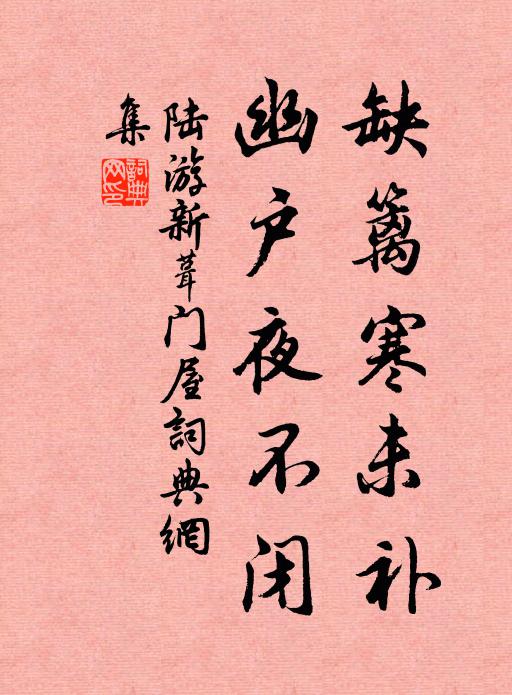 缺篱寒未补
幽户夜不闭
陆游新葺门屋詞典網
集
詞典
网印